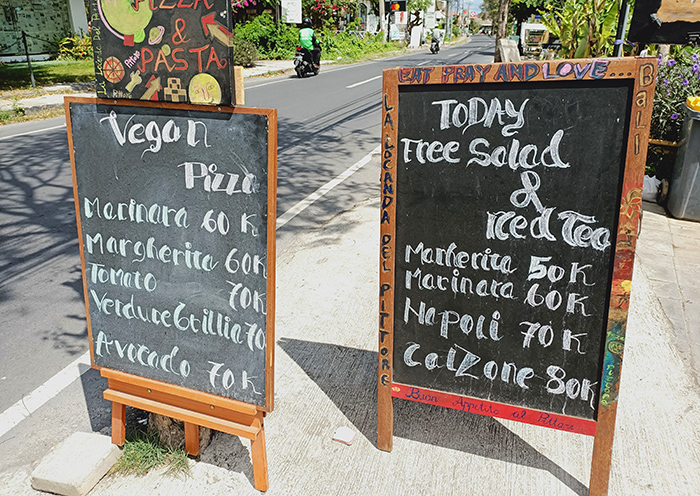 PIZZA
&
PASTA
Vegan
Pizza
Marinara 60 K
Margherita 60K
Tomato 70K
Verdure Grillia 70
Avocado 70K
EAT PRAY AND LOVE...
Bali
LA LOCANDA DEL PITTORE
TODAY
Free Salad
&
Iced Tea
Marherita 50K
Marinara 60K
Napoli 70K
CalZone 80K
Buon Appetito al Pittore